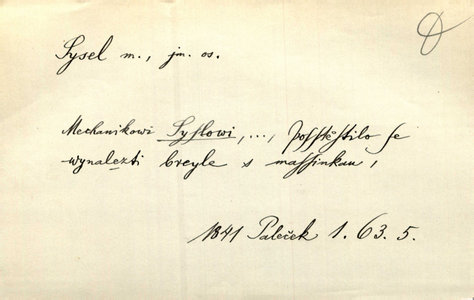 Sysel m., jm. os.
Mechanikowi Syslowi, ..., posstěstilo se
wynalezti breyle s massinkau,
1841 Paleček 1. 63. 5.